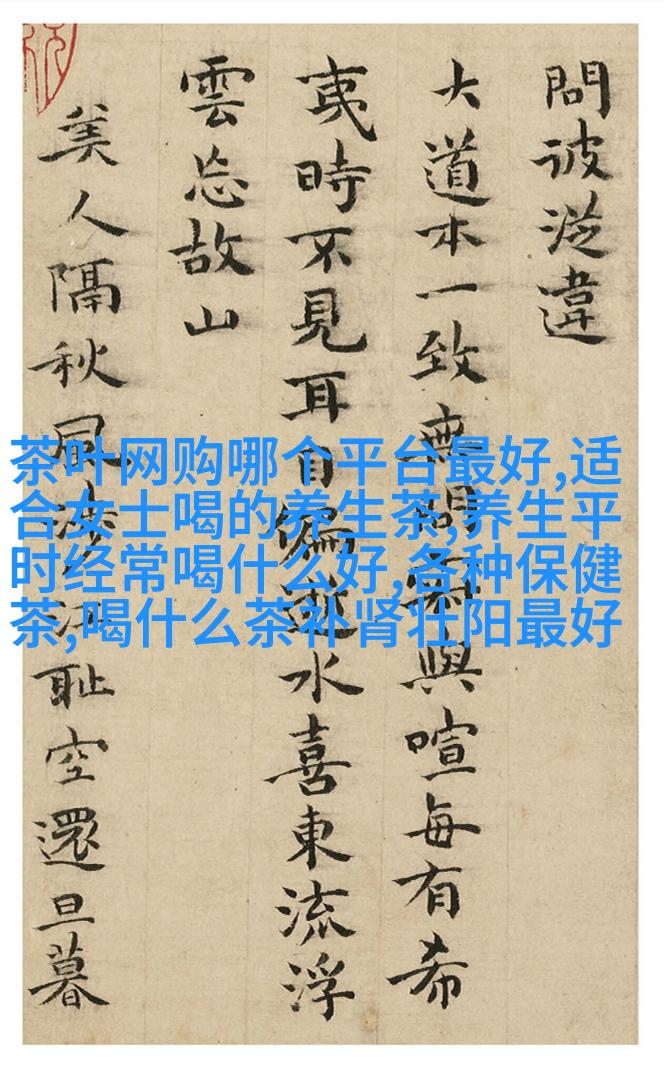 問彼違
大道本一致無與喧每有希
夷時不見耳偏水喜東流浮
雲忘故山
美人隔秋風耻空還旦暮
茶叶网购哪个平台最好,适
合女士喝的养生茶,养生平
时经常喝什么好,各种保健
茶,喝什么茶补肾壮阳最好